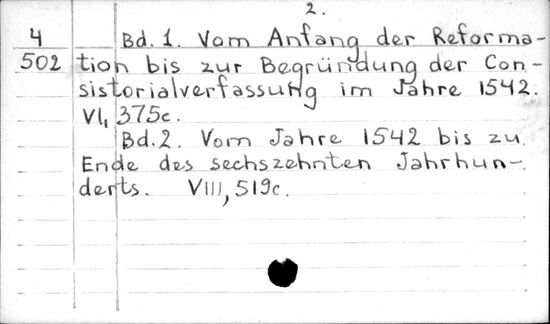 2.
4 Bd. 1. Vom Anfang der Reforma-
502 tion bis zur Begründung der Con-
sistorialverfassung im Jahre 1542.
VI, 375c.
Bd. 2. Vom Jahre 1542 bis zu
Ende des sechszehnten Jahrhun-
derts. VIII, 519c.